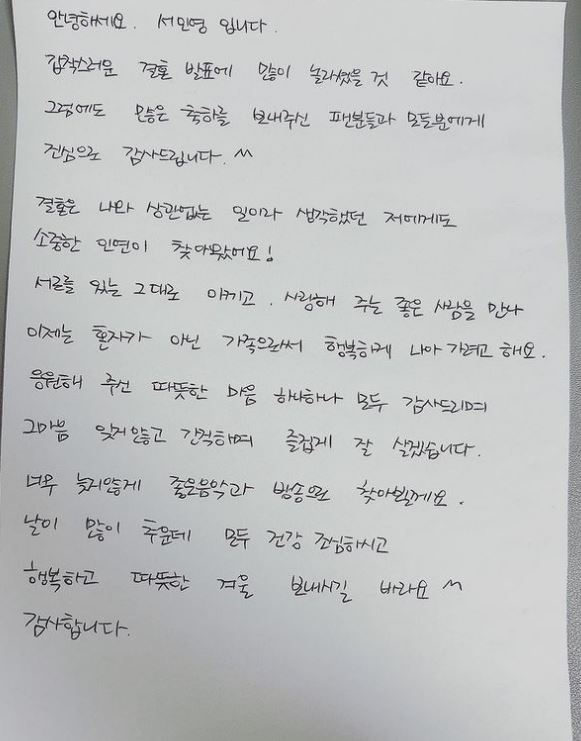 안녕하세요. 서인영 입니다.
갑작스러운 결혼 발표에 많이 놀라셨을것 같아요.
그럼에도 많은 축하를 보내주신 팬분들과 모든분에게
진심으로 감사드립니다. ^^
결혼은 나와 상관없는 일이라 생각했던 저에게도
소중한 인연이 찾아왔어요!
서로를 있는 그대로 아끼고, 사랑해 주는 좋은 사람을 만나
이제는 혼자가 아닌 가족으로써 행복하게 나아가려고 해요.
응원해 주신 따뜻한 마음 하나하나 모두 감사드리며
그마음 잊지않고 간직하며 즐겁게 잘 살겠습니다.
너무 늦지않게 좋은음악과 방송으로 찾아뵐께요.
날이 많이 추운데 모두 건강 조심하시고
행복하고 따뜻한 겨울 보내시길 바라요 ^^
감사합니다.